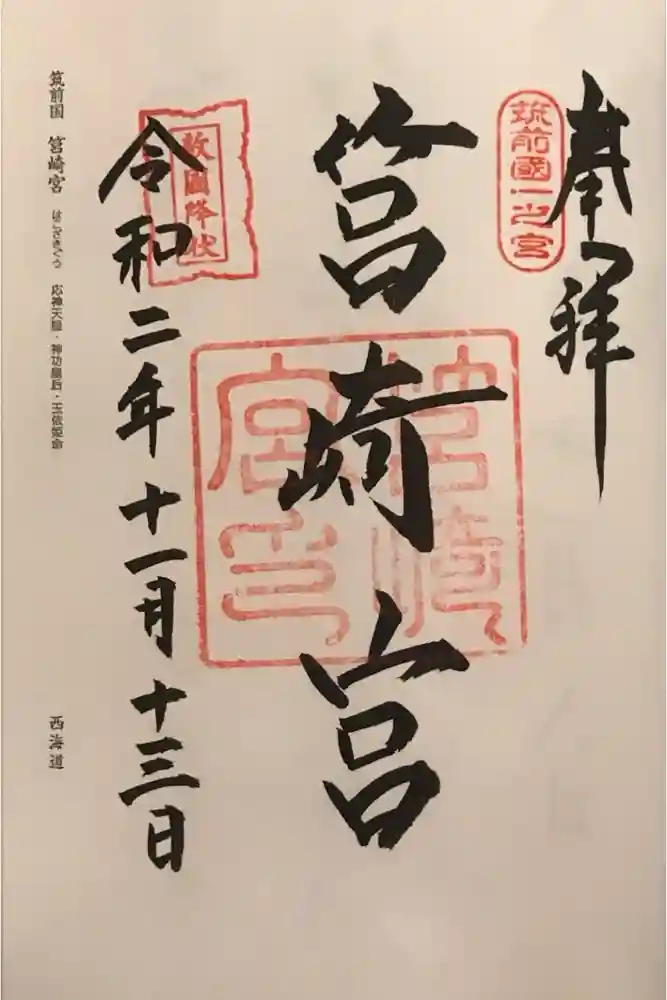 奉拝
筑前國一之宮
筥崎宮
筥崎宮印
敵國降伏
令和二年十一月十三日
筑前国 筥崎宮 はこざきぐう 応神天皇・神功皇后・玉依姫命
西海道